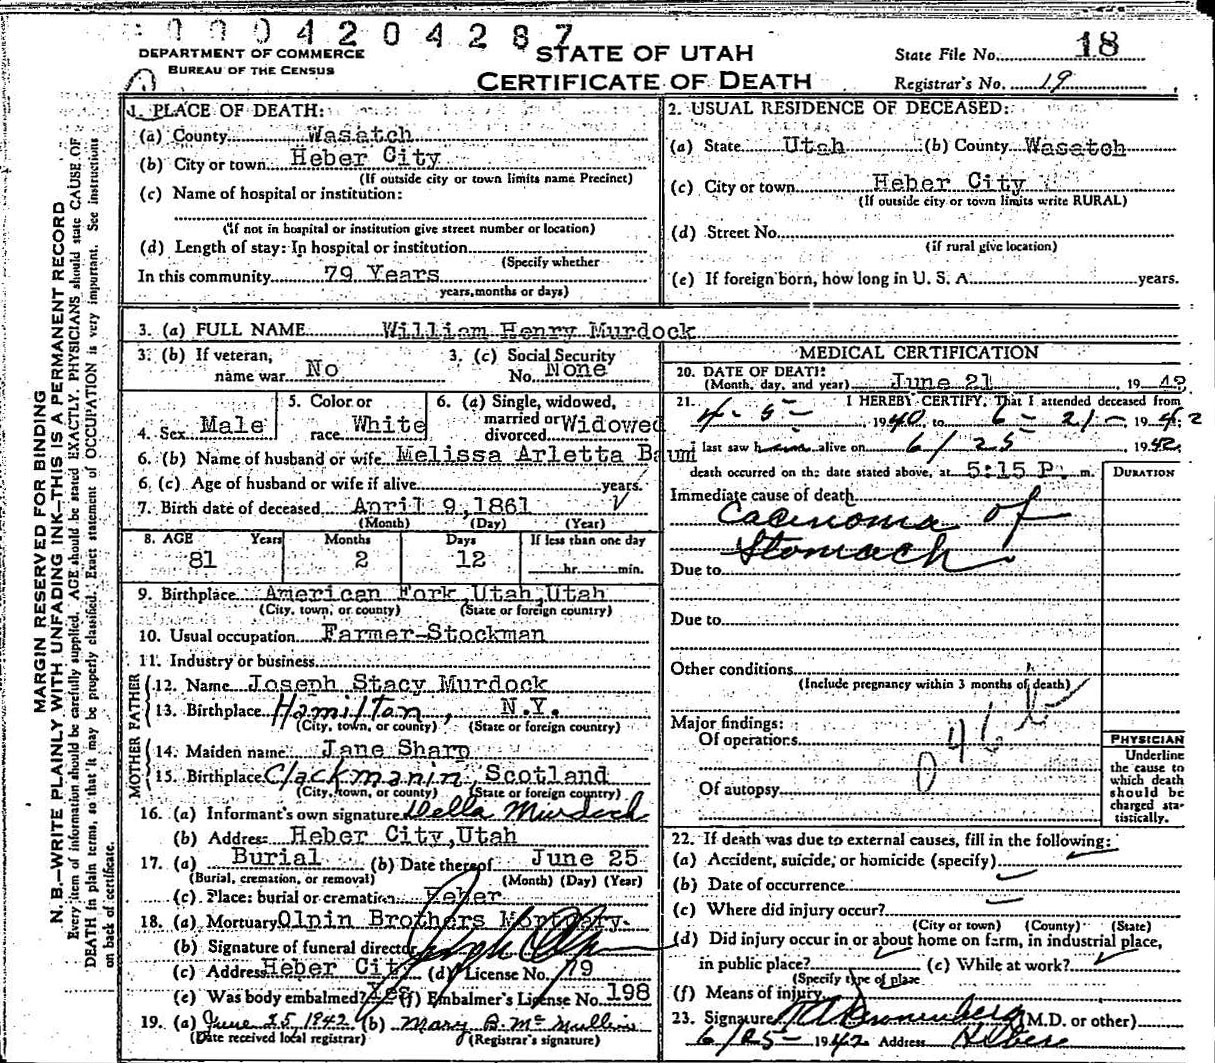 0004204287
DEPARTMENT OF COMMERCE
BUREAU OF THE CENSUS
STATE OF UTAH
CERTIFICATE OF DEATH
State File No. 18
Registrar's No. 19
MARGIN RESERVED FOR BINDING
N. B.—WRITE PLAINLY WITH UNFADING INK—THIS IS A PERMANENT RECORD
Every item of information should be carefully supplied. AGE should be stated EXACTLY. PHYSICIANS should state CAUSE OF
DEATH in plain terms, so that it may be properly classified. Exact statement of OCCUPATION is very important. See instructions
on back of certificate.
1. PLACE OF DEATH:
(a) County Wasatch
(b) City or town Heber City
(If outside city or town limits name Precinct)
(c) Name of hospital or institution:
(If not in hospital or institution give street number or location)
(d) Length of stay: In hospital or institution
(Specify whether
In this community 79 Years
years, months or days)
2. USUAL RESIDENCE OF DECEASED:
(a) State Utah (b) County Wasatch
(c) City or town Heber City
(If outside city or town limits write RURAL)
(d) Street No.
(If rural give location)
(e) If foreign born, how long in U. S. A. years.
3. (a) FULL NAME William Henry Murdock
3. (b) If veteran, name war No
3. (c) Social Security No. None
4. Sex Male
5. Color or race White
6. (a) Single, widowed, married or divorced Widowed
6. (b) Name of husband or wife Melissa Arletta Baum
6. (c) Age of husband or wife if alive years.
7. Birth date of deceased April 9, 1861
(Month) (Day) (Year)
8. AGE Years Months Days If less than one day
81 2 12 hr. min.
9. Birthplace American Fork, Utah, Utah
(City, town, or county) (State or foreign country)
10. Usual occupation Farmer-Stockman
11. Industry or business
FATHER
12. Name Joseph Stacy Murdock
13. Birthplace Hamilton, N.Y.
(City, town, or county) (State or foreign country)
MOTHER
14. Maiden name Jane Sharp
15. Birthplace Clackmanin, Scotland
(City, town, or county) (State or foreign country)
16. (a) Informant's own signature Della Murdock
(b) Address Heber City, Utah
17. (a) Burial (b) Date thereof June 25
(Burial, cremation, or removal) (Month) (Day) (Year)
(c) Place: burial or cremation Heber
18. (a) Mortuary Olpin Brothers Mortuary
(b) Signature of funeral director
(c) Address Heber City (d) License No. 79
(e) Was body embalmed? Yes (f) Embalmer's License No. 198
19. (a) June 25 1942 (b) Mary A. McMullin
(Date received local registrar) (Registrar's signature)
MEDICAL CERTIFICATION
20. DATE OF DEATH: June 21, 1942
(Month, day, and year)
21. I HEREBY CERTIFY, That I attended deceased from
4-5- 1940 to 6-21- 1942
I last saw him alive on 6/25 1942
death occurred on the date stated above, at 5:15 P. m.
DURATION
Immediate cause of death
Cacinoma of
Stomach
Due to
Due to
Other conditions
(Include pregnancy within 3 months of death)
Major findings:
Of operations
Of autopsy
046b
PHYSICIAN
Underline
the cause to
which death
should be
charged sta-
tistically.
22. If death was due to external causes, fill in the following:
(a) Accident, suicide, or homicide (specify)
(b) Date of occurrence
(c) Where did injury occur?
(City or town) (County) (State)
(d) Did injury occur in or about home on farm, in industrial place,
in public place? (e) While at work?
(Specify type of place
(f) Means of injury
23. Signature (M.D. or other)
6/25- 1942 Address Heber